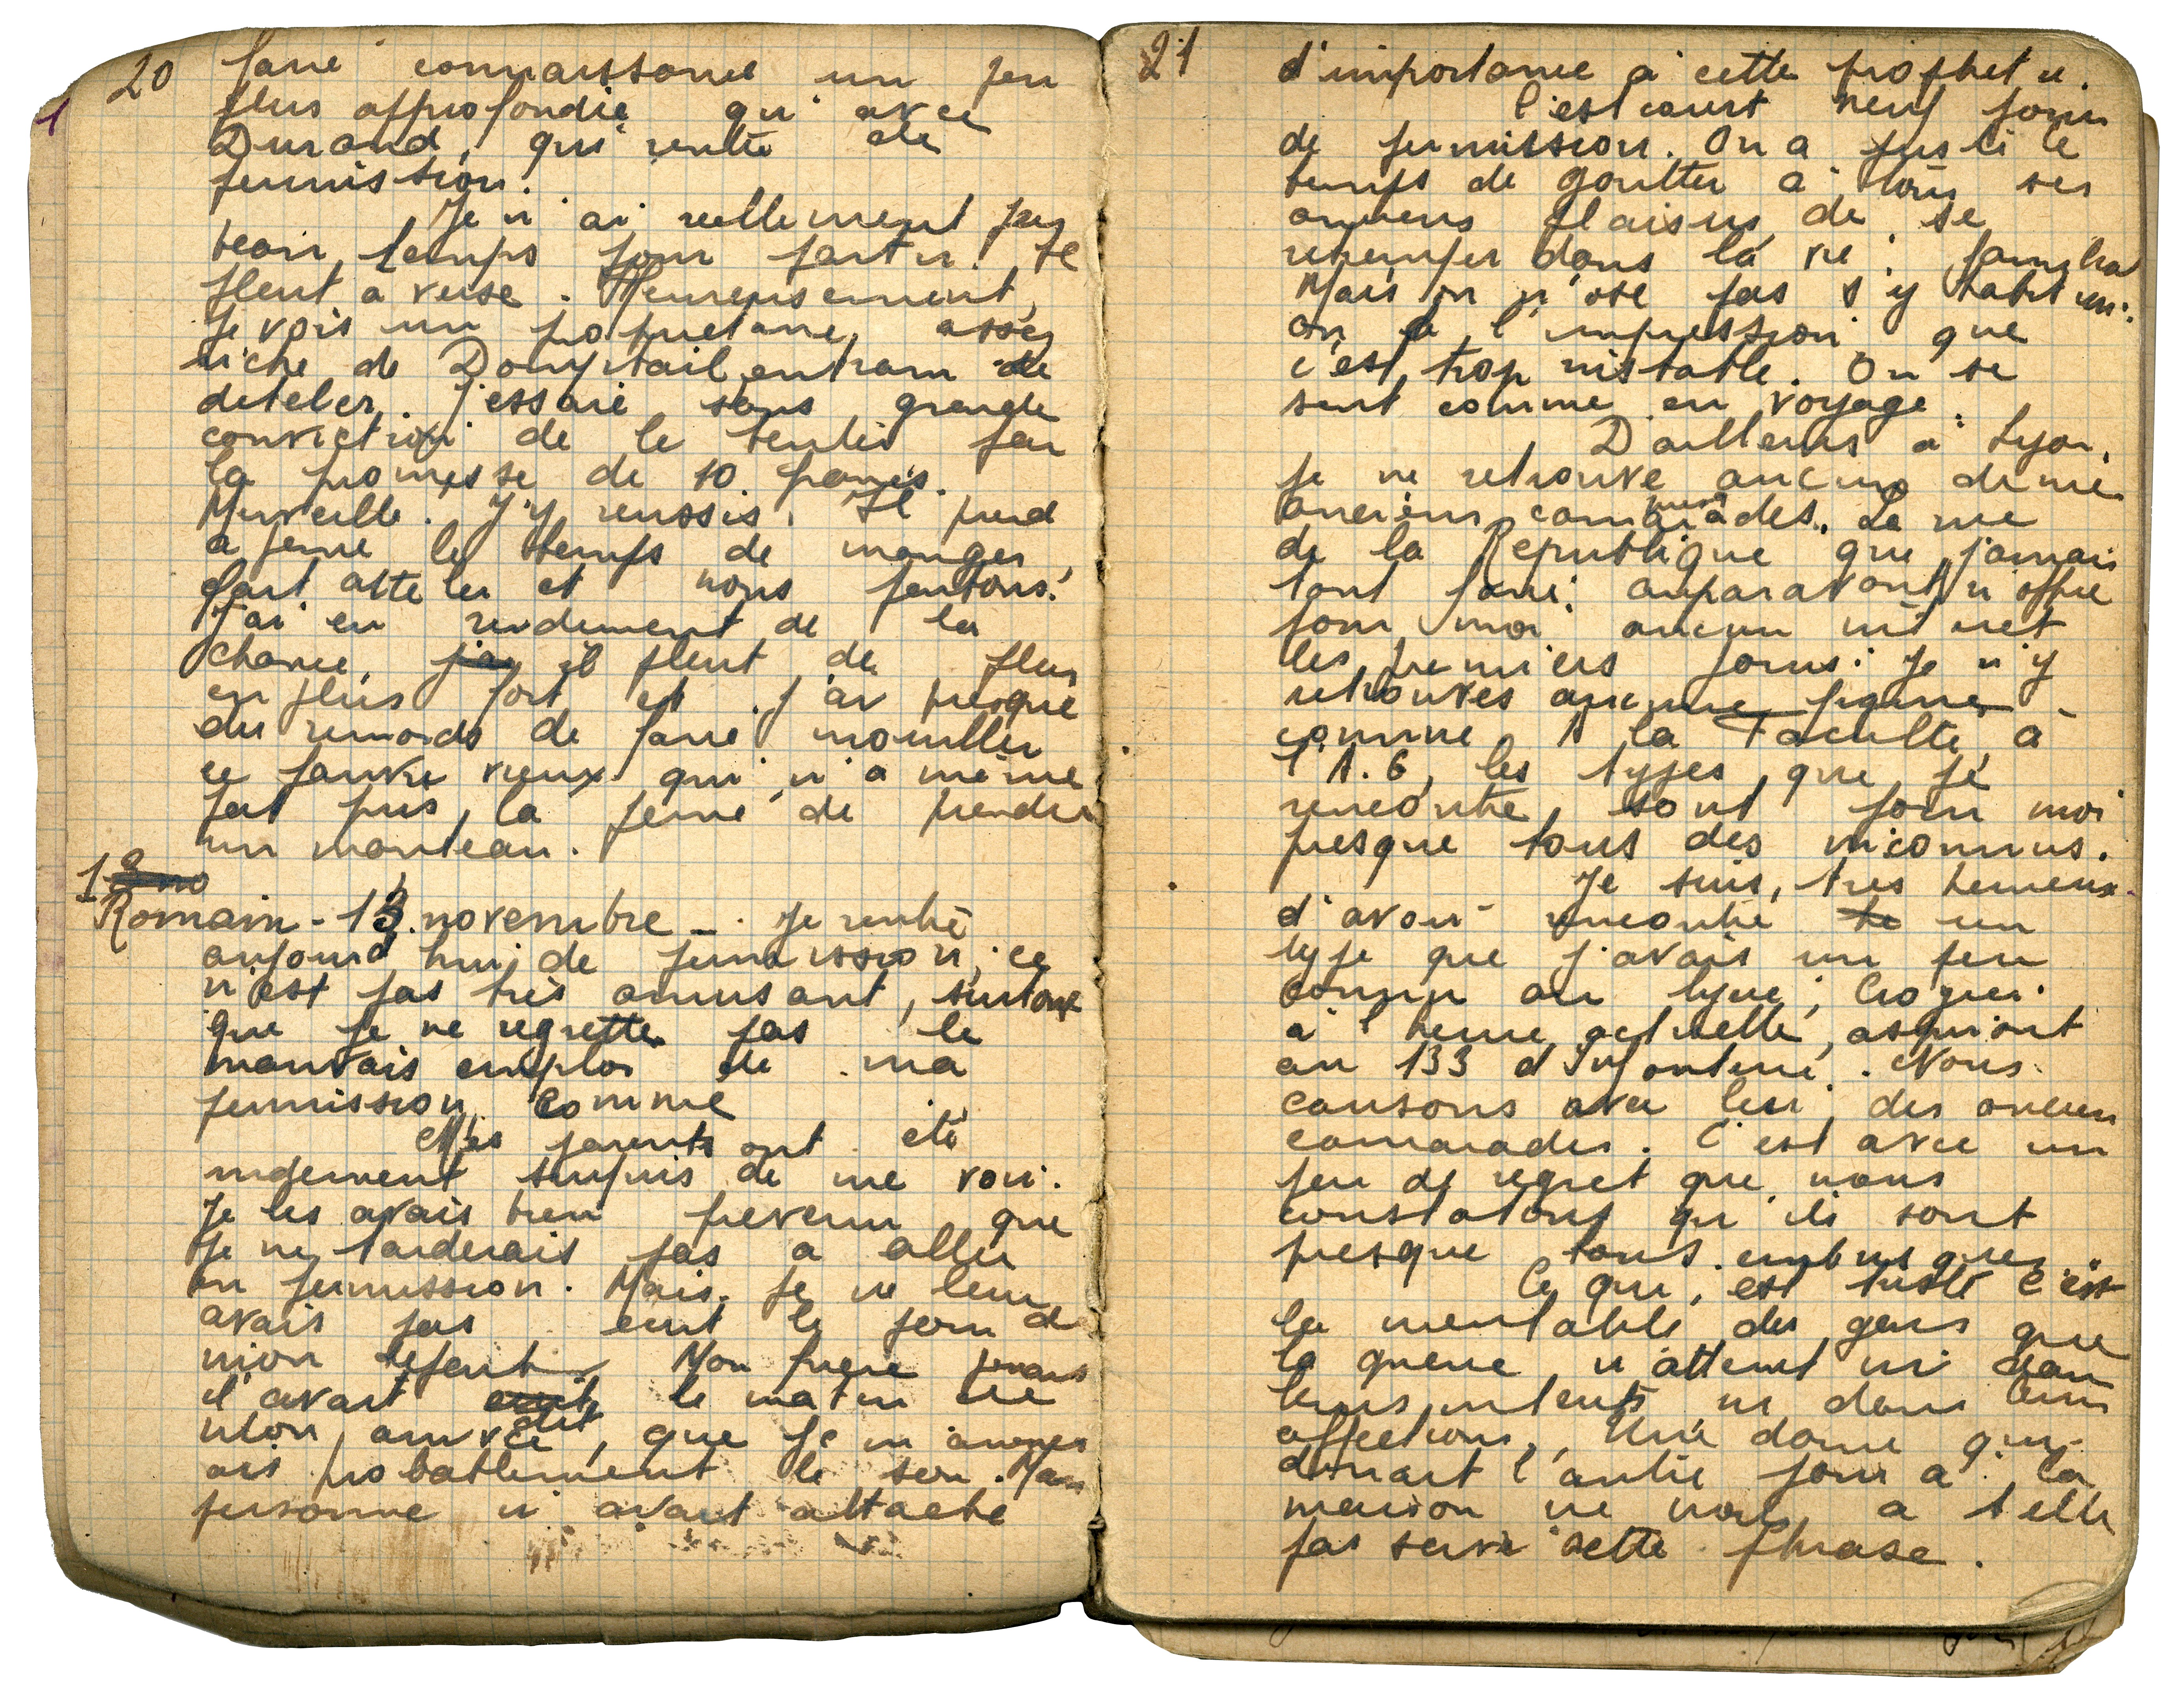 20
faire connaissance un peu
plus approfondie qu'avec
Durand, qui rentre de
permission.
Je n'ai reellement pas
beau temps pour partir. Il
pleut a verse. Heureusement,
je vois un propriétaire assez
riche de Domptail entrain de
deteler. J'essaie sans grande
conviction de le tenter par
la promesse de 10 francs.
Merveille. J'y reussis. Il prend
a peine le temps de manger,
fait atteler et nous partons.
J'ai eu rudement de la
chance, j'ai il pleut de plus
en plus fort et j'ai presque
des remords de faire mouiller
ce pauvre vieux qui n'a même
pas pris la peine de prendre
un manteau.
Romain - 13 novembre - Je rentre
aujourd'hui de permission, ce
n'est pas très amusant, surtout
que je ne regrette pas le
mauvais emploi de ma
permission comme
Mes parents ont été
rudement surpris de me voir.
Je les avais bien prevenu que
je ne tarderais pas a aller
en permission. Mais je ne leur
avais pas ecrit le jour de
mon depart. Mon frere
il avait ecrit le matin de
mon arrivée dit, que je m'amener
ais probablement le soir. Mais
personne n'avait attache
21
d'importance à cette prophetie.
C'est court neuf jours
de permission. On a juste le
temps de goutter à tous ses
anciens plaisirs, de se
retremper dans la vie familia
Mais on n'ose pas s'y habituer.
on a l'impression que
c'est trop instable. On se
sent comme en voyage.
D'ailleurs à Lyon,
je ne retrouve aucuns de mes
anciens camarades. La rue
de la Republique que j'aimais
tant faire auparavant n'offre
pour moi aucun interet
les premiers jours: je n'y
retrouves aucune figure -
comme à la Faculté, à
l'A. G, les types que je
rencontre, sont pour moi
presque tous des inconnus.
Je suis, tres heureux
d'avoir rencontré le un
type que j'avais un peu
connu au lycée, Crozier
à l'heure actuelle, aspirant
au 133 d'Infanterie. Nous
causons avec lui, des anciens
camarades. C'est avec un
peu de regret que nous
constatons qu'ils sont
presque tous embusques.
Ce qui, est triste c'est
la mentalité des gens que
la guerre n'atteint ni dans
leurs interets ni dans leurs
affections. Une dame qui
dinait l'autre jour à la
maison ne nous a t elle
pas servi cette phrase.